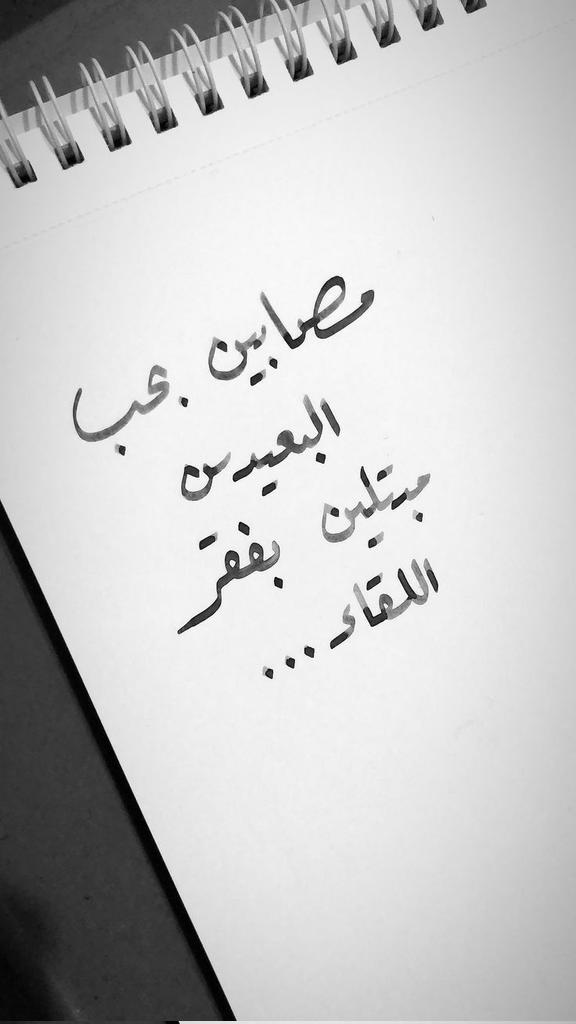 مصابين بحب
البعيدين
مبتلين بفقر
اللقاء...